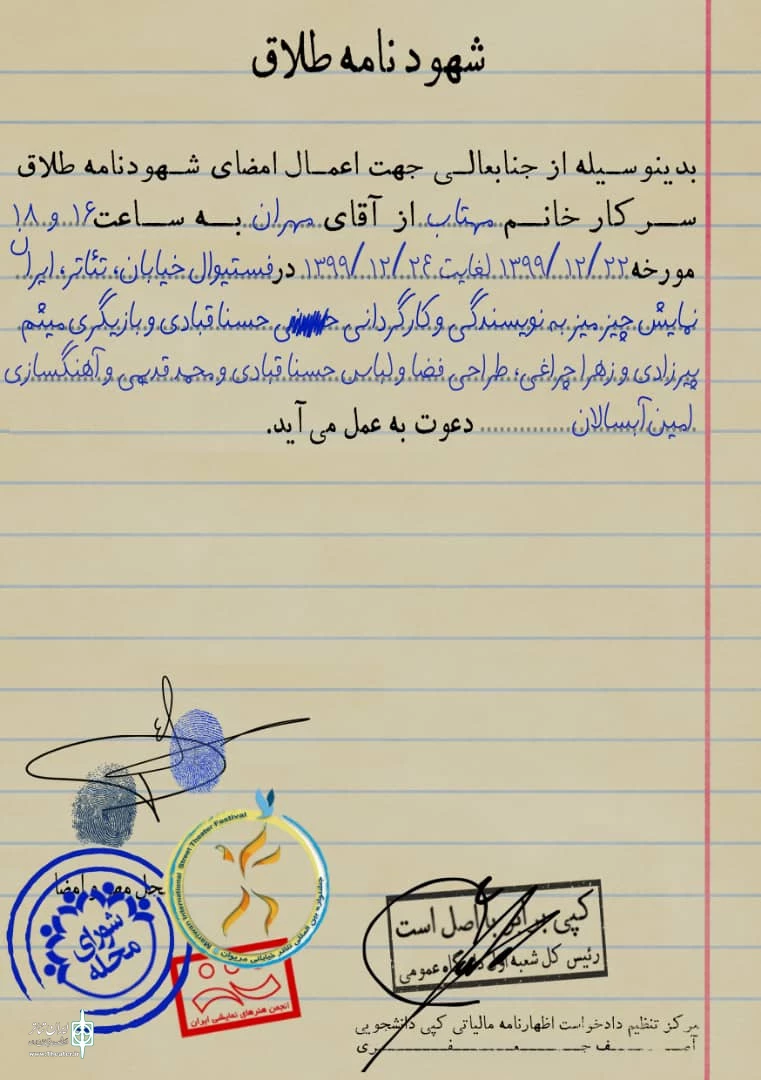 شهود نامه طلاق
بدینوسیله از جنابعالی جهت اعمال امضای شهودنامه طلاق
سرکار خانم مهتاب از آقای مهران به ساعت ۱۶ و ۱۸
مورخه ۱۳۹۹/۱۲/۲۲ لغایت ۱۳۹۹/۱۲/۲۴ در فستیوال خیابان، تئاتر، ایران
نمایش چیز میز به نویسندگی و کارگردانی حسنا قبادی و بازیگری میثم
پیرزادی و زهرا چراغی، طراحی فضا و لباس حسنا قبادی و محمد قدیمی و آهنگسازی
امین آبسالان .............. دعوت به عمل می آید.
محل مهر و امضا
شورای
محله
Mariwan International Street Theater Festival
جشنواره بین المللی تئاتر خیابانی مریوان
انجمن هنرهای نمایشی ایران
کپی برابر با اصل است
رئیس کل شعبه اول دادگاه عمومی
مرکز تنظیم دادخواست اظهارنامه مالیاتی کپی دانشجویی
ایران تئاتر
www.Theater.ir